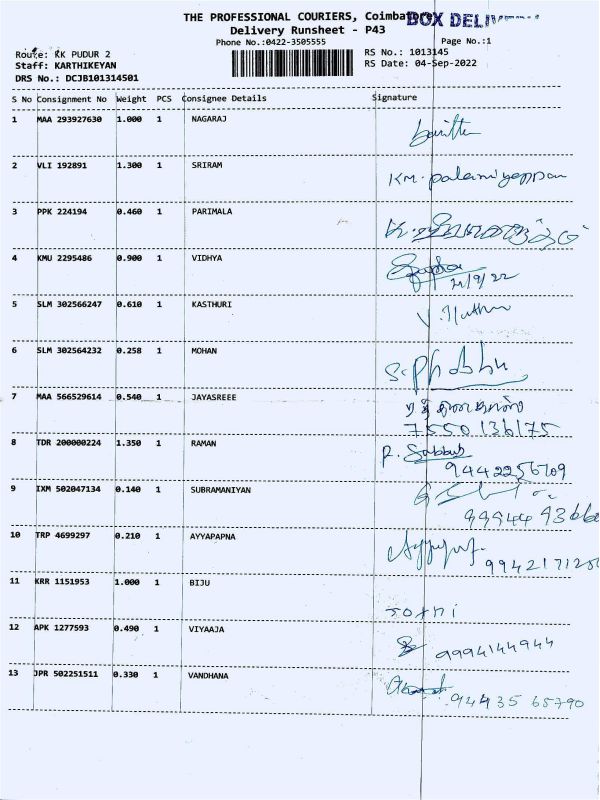 THE PROFESSIONAL COURIERS, Coimbatore
BOX DELIVERY
Delivery Runsheet - P43
Phone No.:0422-3505555
Page No.:1
Route: KK PUDUR 2
RS No.: 1013145
Staff: KARTHIKEYAN
RS Date: 04-Sep-2022
DRS No.: DCJB101314501
S No Consignment No Weight PCS Consignee Details Signature
1 MAA 293927630 1.000 1 NAGARAJ
2 VLI 192891 1.300 1 SRIRAM KM. palaniyappan
3 PPK 224194 0.460 1 PARIMALA
4 KMU 2295486 0.900 1 VIDHYA
5 SLM 302566247 0.610 1 KASTHURI V. Muthu
6 SLM 302564232 0.258 1 MOHAN S. Phabhu
7 MAA 566529614 0.540 1 JAYASREEE
7550136175
8 TDR 200000224 1.350 1 RAMAN
9442256709
9 IXM 502047134 0.140 1 SUBRAMANIYAN
10 TRP 4699297 0.210 1 AYYAPAPNA
11 KRR 1151953 1.000 1 BIJU Jothi
12 APK 1277593 0.490 1 VIYAAJA 9994144944
13 JPR 502251511 0.330 1 VANDHANA
94435 65790